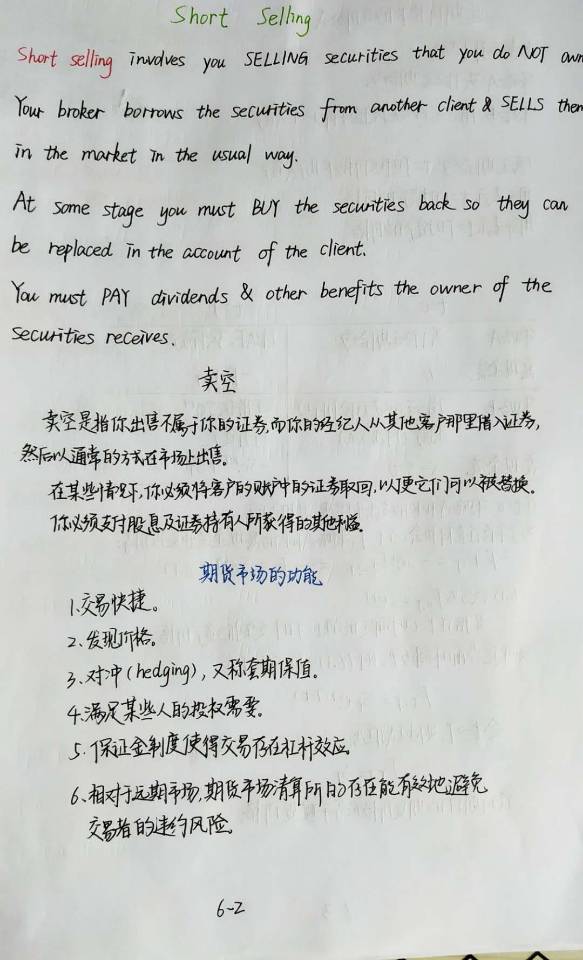 Short Selling
Short selling involves you SELLING securities that you do NOT own
Your broker borrows the securities from another client & SELLS them
in the market in the usual way.
At some stage you must BUY the securities back so they can
be replaced in the account of the client.
You must PAY dividends & other benefits the owner of the
securities receives.
卖空
卖空是指你出售不属于你的证券,而你的经纪人从其他客户那里借入证券,
然后以通常的方式在市场上出售。
在某些情况下,你必须将客户的账户中的证券取回,以便它们可以被替换。
你必须支付股息及证券持有人所获得的其他利益。
期货市场的功能
1.交易快捷。
2、发现价格。
3、对冲(hedging),又称套期保值。
4.满足某些人的投权需要。
5、保证金制度使得交易存在杠杆效应。
6、相对于远期市场,期货市场清算所的存在能有效地避免
交易者的违约风险。
6-2